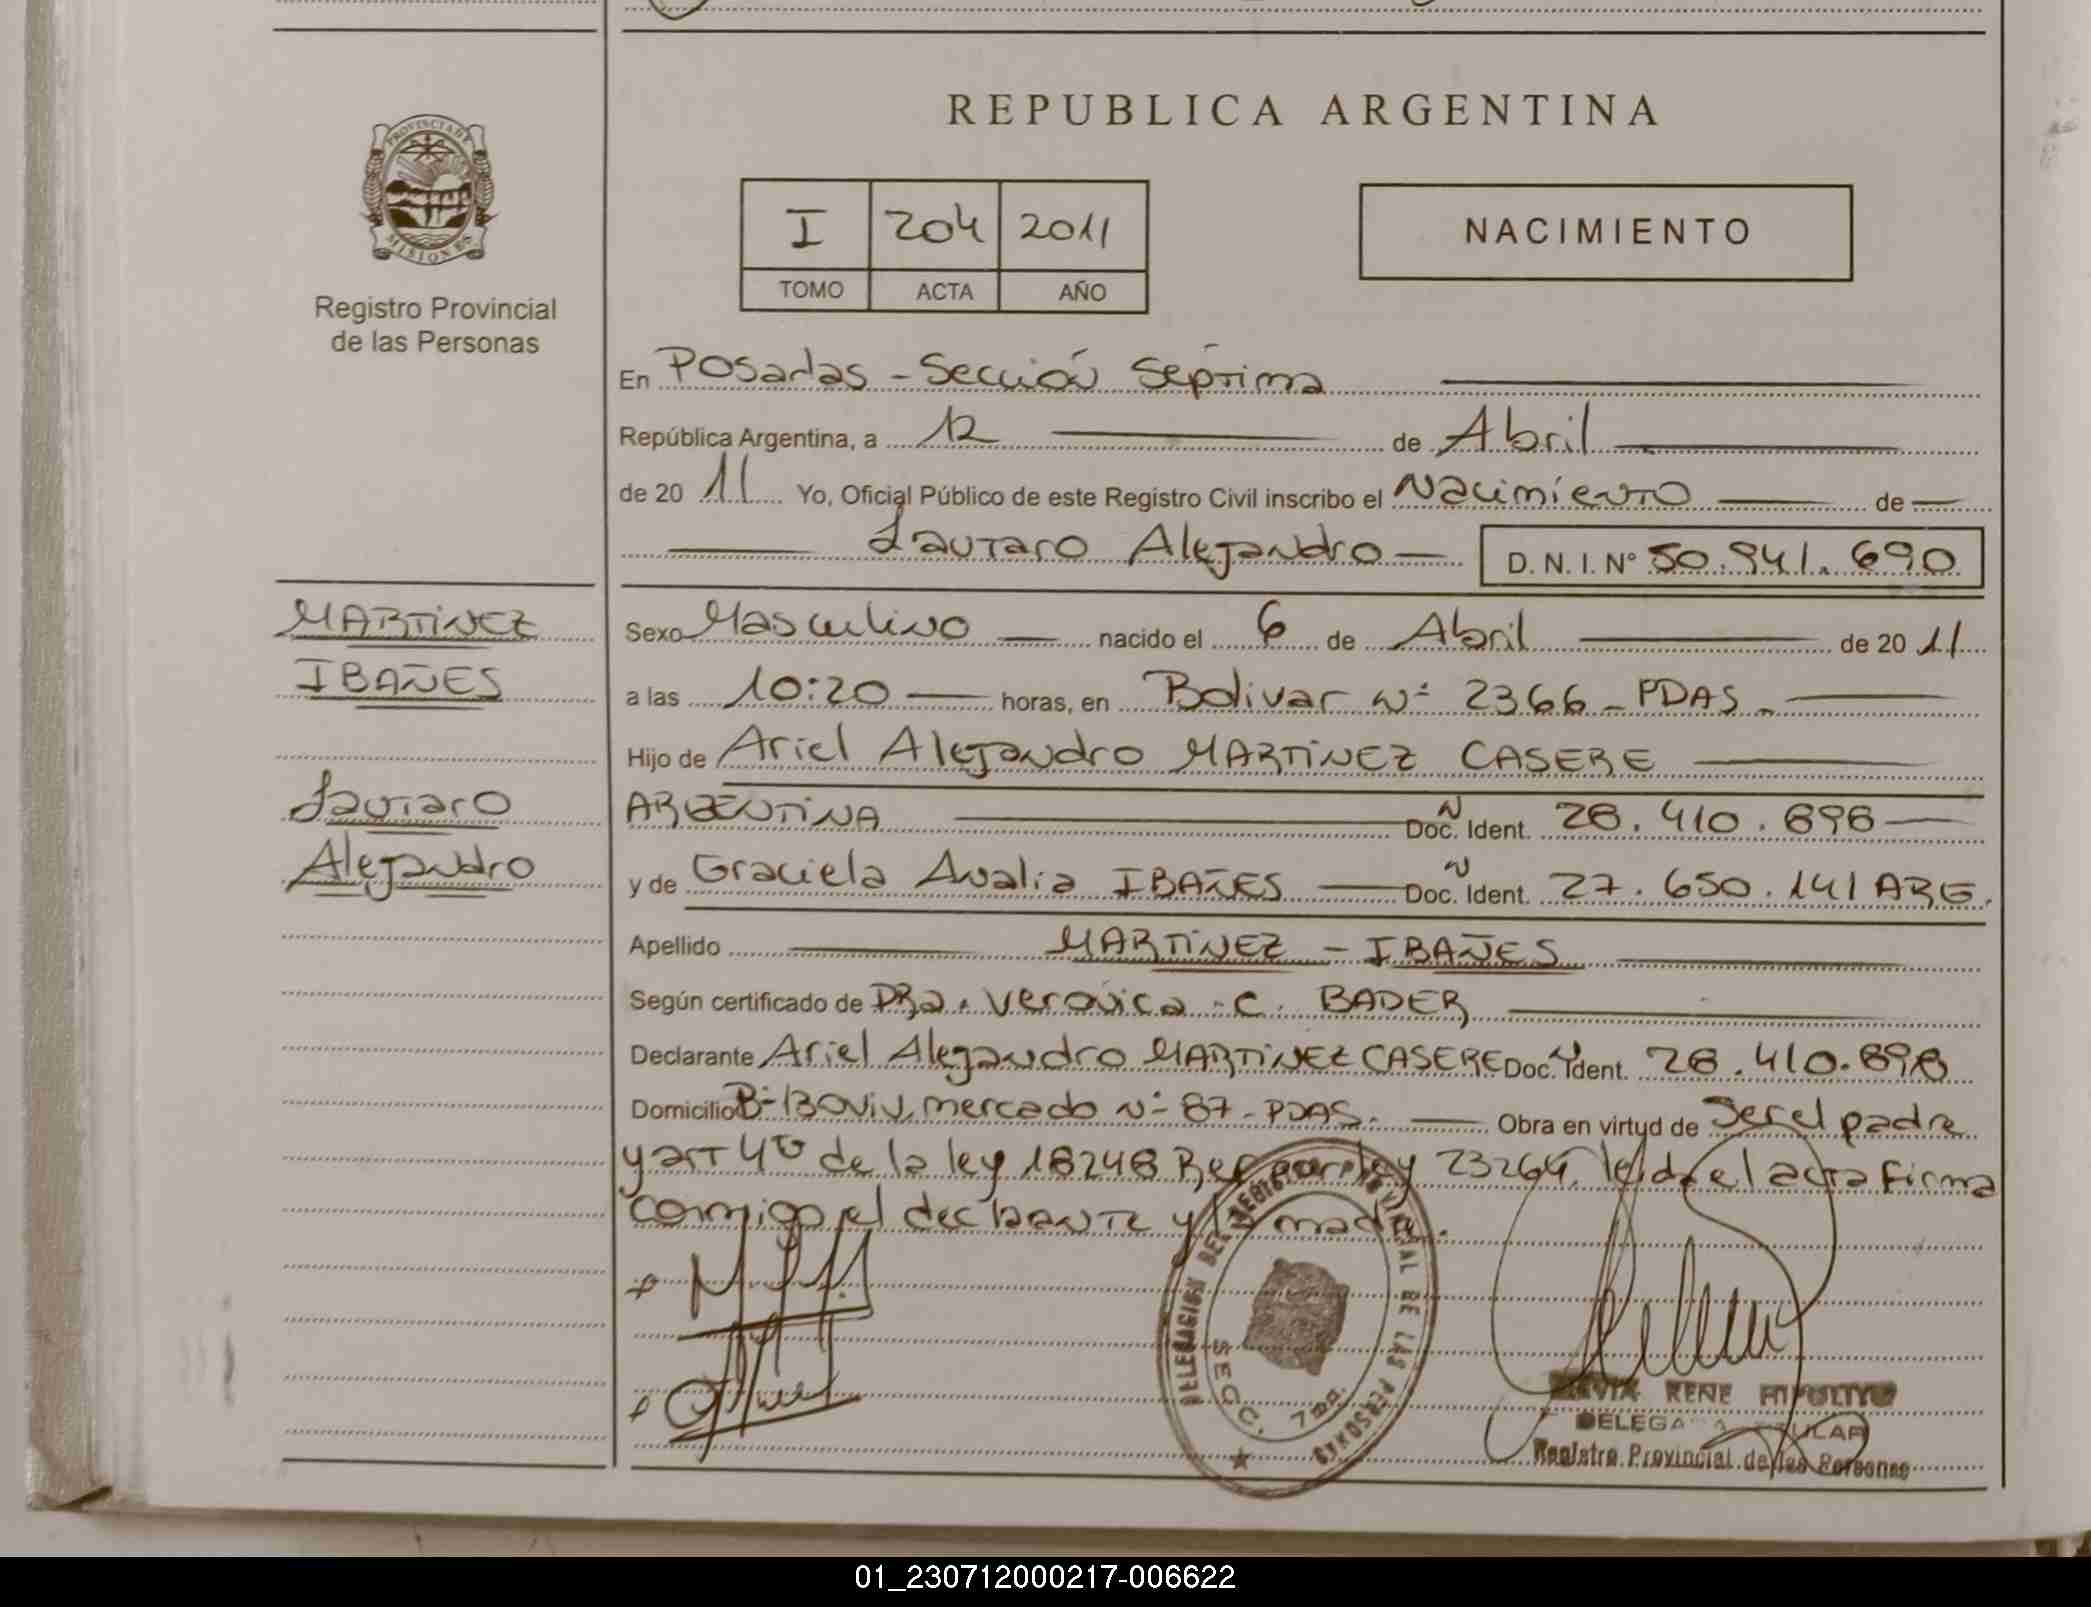 REPUBLICA ARGENTINA
PROVINCIA DE
MISIONES
Registro Provincial
de las Personas
I 204 2011
TOMO ACTA AÑO
NACIMIENTO
En Posadas - Sección Séptima
República Argentina, a 12 de Abril
de 2011 Yo, Oficial Público de este Registro Civil inscribo el Nacimiento de
Lautaro Alejandro D. N. I. Nº 50.941.690
MARTINEZ
IBAÑES
Lautaro
Alejandro
Sexo Masculino nacido el 6 de Abril de 2011
a las 10:20 horas, en Bolivar Nº 2366 - PDAS -
Hijo de Ariel Alejandro MARTINEZ CASERE
ARGENTINA Doc. Ident. 28.410.898
y de Graciela Analia IBAÑES Doc. Ident. 27.650.141 ARG.
Apellido MARTINEZ - IBAÑES
Según certificado de DRa. Veronica - C. BADER
Declarante Ariel Alejandro MARTINEZ CASERE Doc. Ident. 28.410.898
Domicilio Bº 130 Viv. mercado Nº 87 - PDAS. Obra en virtud de Ser el padre
y art 4º de la ley 18248 Ref por ley 23264, leída el acta firma
conmigo el declarante y la madre.
DELEGACION DEL REGISTRO PROVINCIAL DE LAS PERSONAS
SECC. 7ma.
RENE HIPOLITO
DELEGADA TITULAR
Registro Provincial de las Personas
01_230712000217-006622